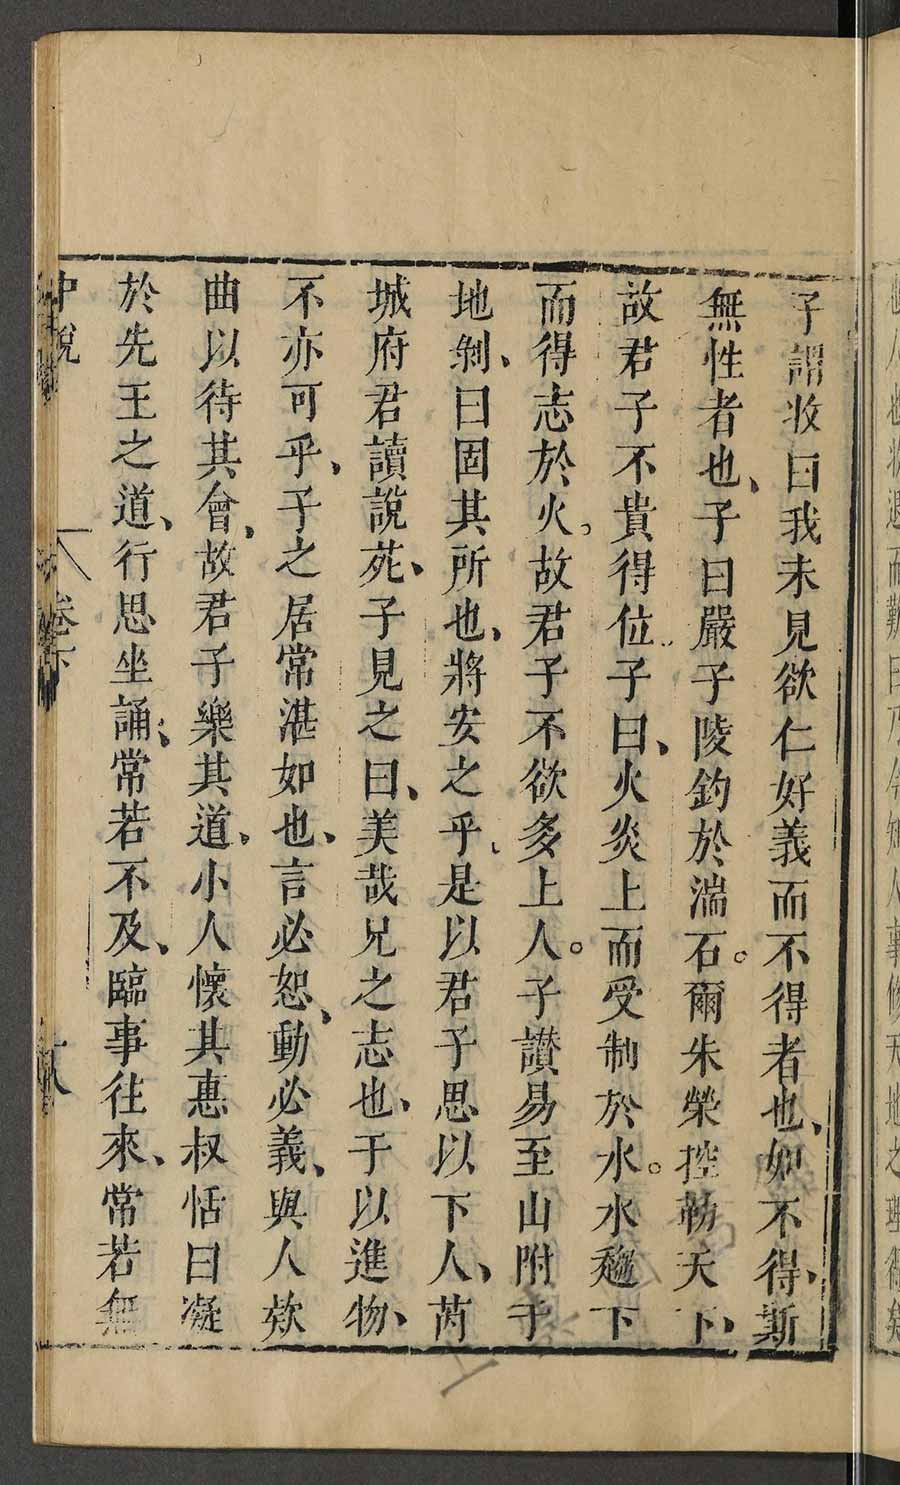 子謂收曰我未見欲仁好義而不得者也、如不得、斯
無性者也、子曰嚴子陵釣於湍石。爾朱榮控勒天下、
故君子不貴得位子曰、火炎上而受制於水。水趨下
而得志於火。故君子不欲多上人。子讃易至山附于
地剝、曰固其所也、將安之乎、是以君子思以下人、芮
城府君讀說苑、子見之曰、美哉兄之志也、于以進物、
不亦可乎、子之居常湛如也、言必恕、動必義、與人欵
曲以待其會、故君子樂其道、小人懷其惠叔恬曰凝
於先王之道、行思坐誦、常若不及、臨事往來、常若無
中說 卷下 十八